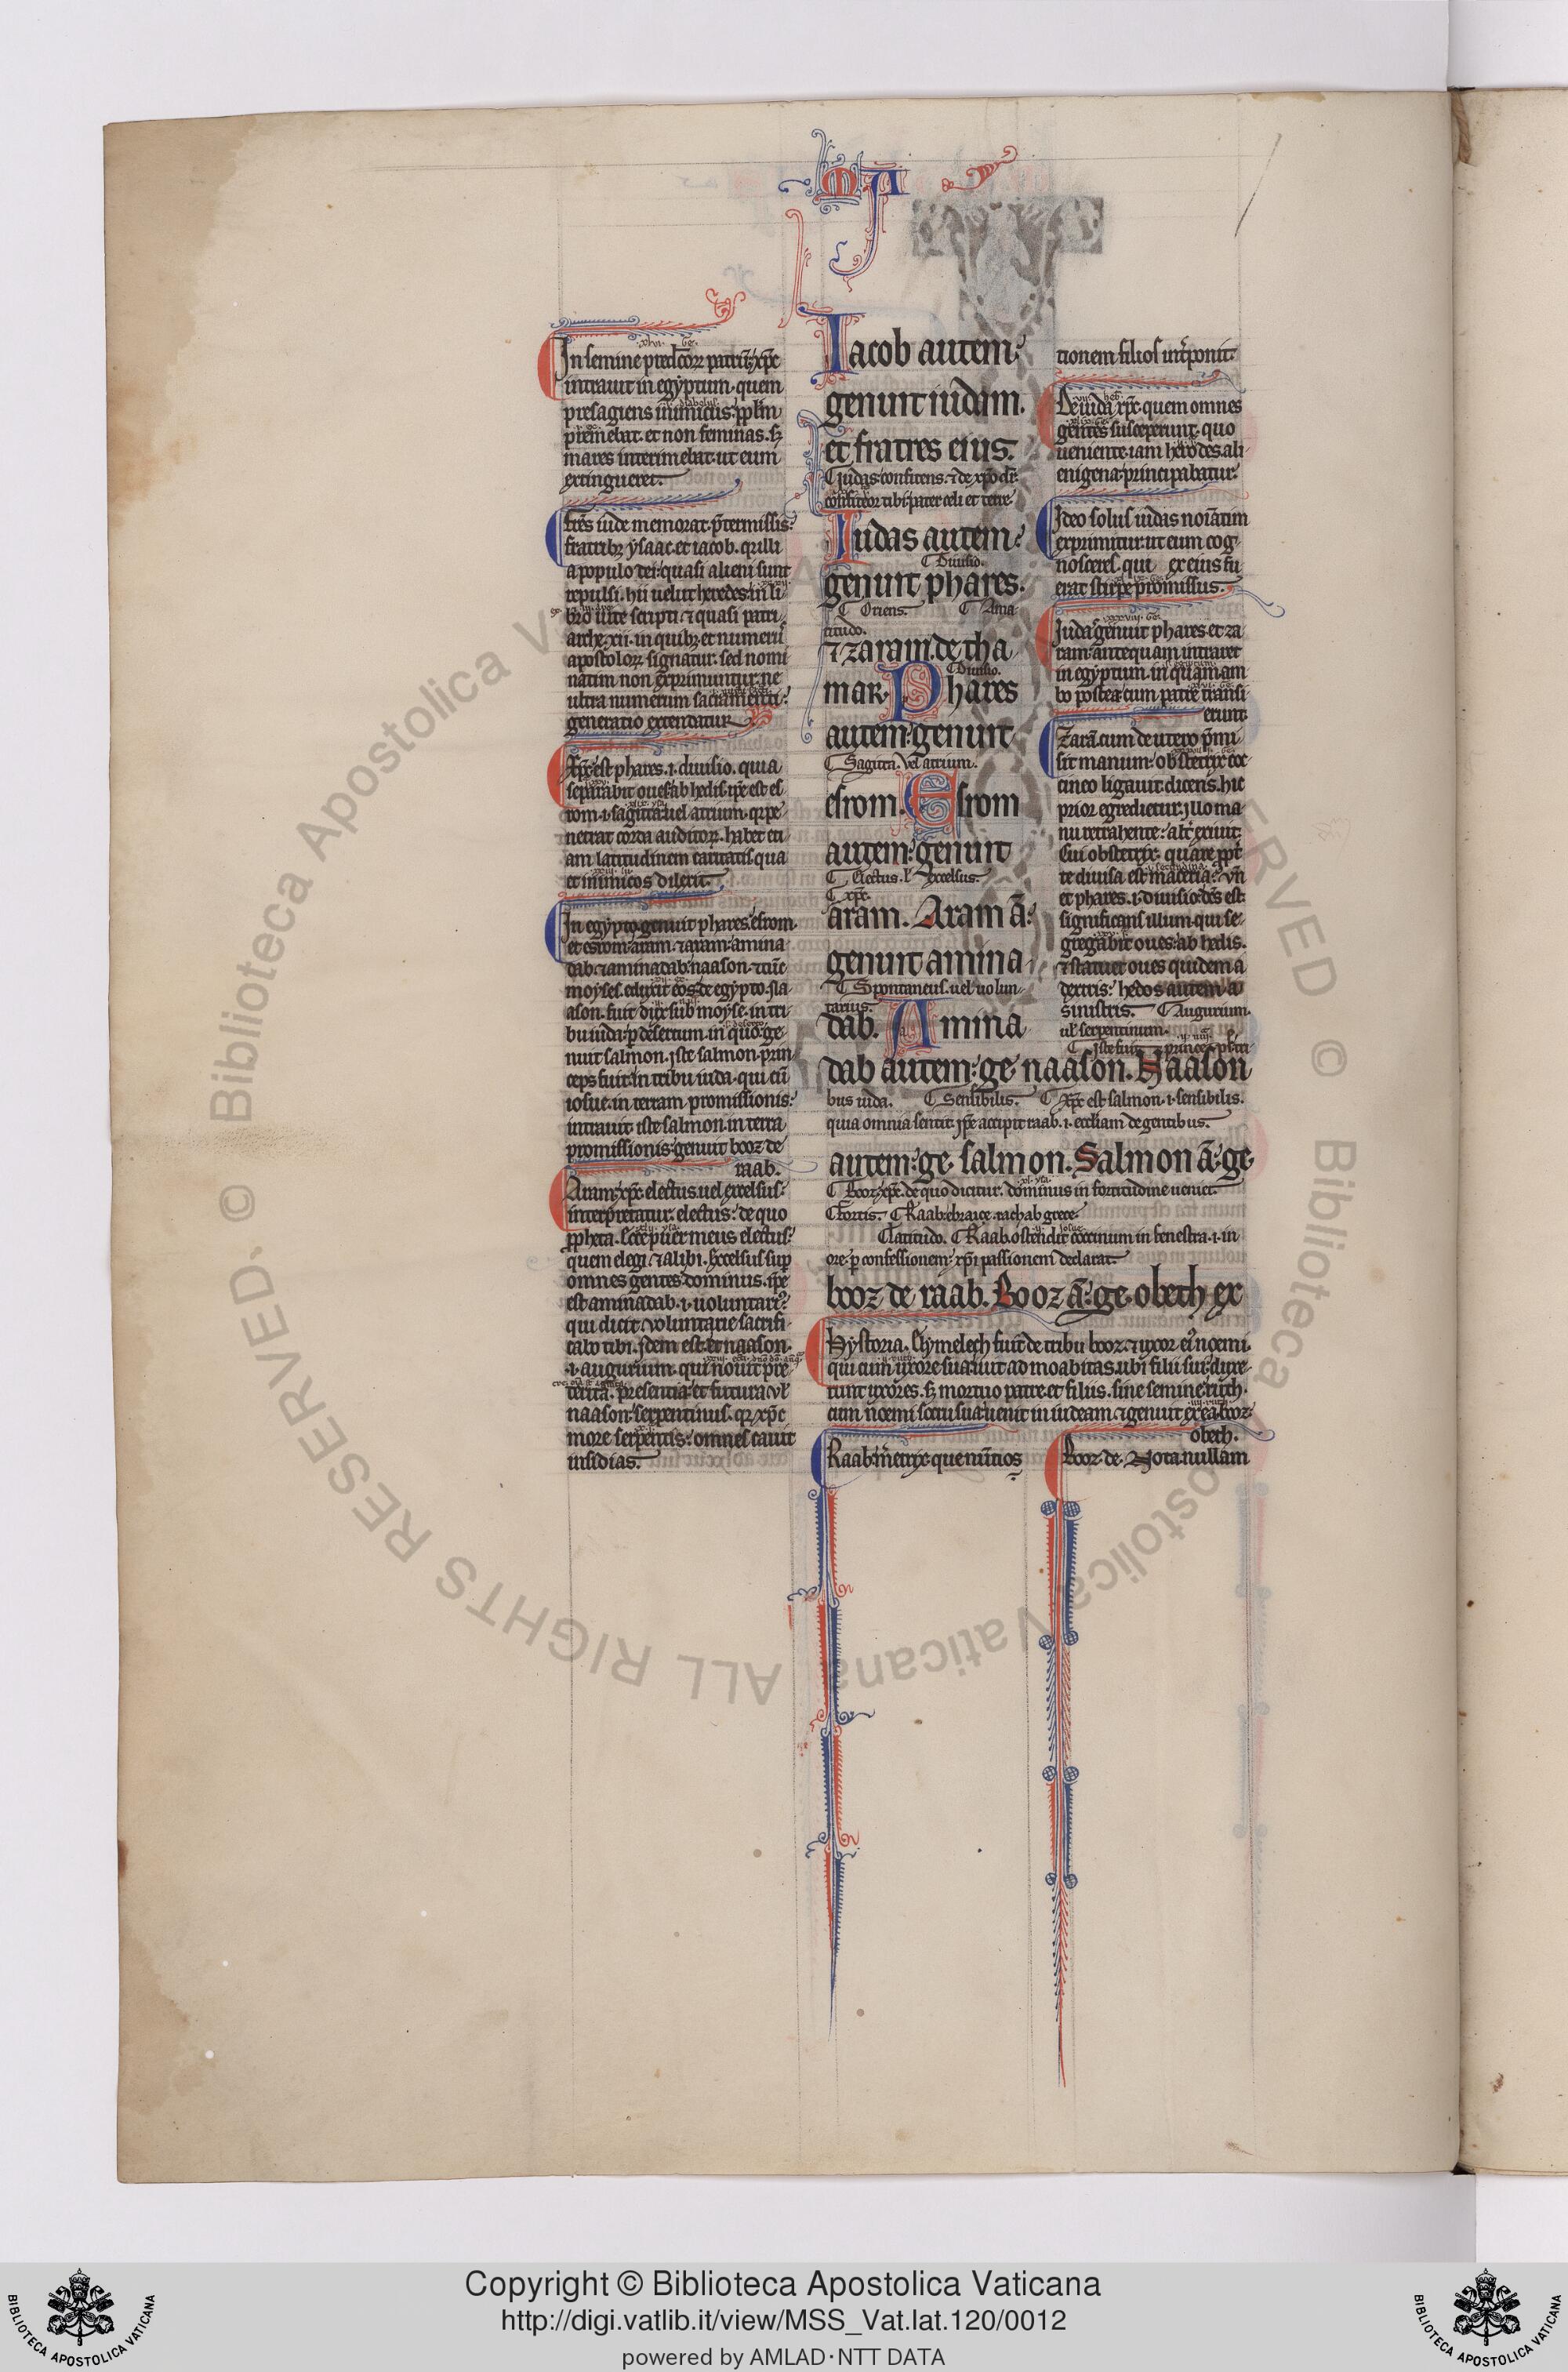 MA
In semine predictorum patrum xpc
intrauit in egyptum. quem
presagiens inimicus. pplm
premebat. et non feminas. sz
mares interimebat. ut eum
extingueret.
fres iude memorat. pretermissis
fratribz ysaac. et iacob. quia illi
a populo dei: quasi alieni sunt
repulsi. hii uelut heredes in li
bro uite scripti. et quasi patri
arche. xii. in quibz et numerus
apostolorz signatur. sed nomi
natim non exprimuntur. ne
ultra numerum sacramenti:
generatio extendatur
Xpc est phares. i. diuisio. quia
separabit oues ab hedis. ipse est es
rom. i. sagitta uel atrium. quia pe
netrat corda auditorz. habet eti
am latitudinem caritatis qua
et inimicos dilexit.
In egypto genuit phares esrom.
et esrom: aram. et aram: amina
dab. et aminadab: naason. et tunc
moyses. eduxit eos de egypto. Na
ason. fuit dux sub moyse. in tri
bu iuda. per desertum. in quo ge
nuit salmon. iste salmon. prin
ceps fuit in tribu iuda. qui cum
iosue. in terram promissionis:
intrauit. iste salmon. in terra
promissionis: genuit booz de
raab.
Aram. xpc electus. uel excelsus:
interpretatur. electus: de quo
ppheta. Ecce puer meus electus:
quem elegi. et alibi. Excelsus sup
omnes gentes dominus. ipse
est aminadab. i. uoluntarius:
qui dicit. uoluntarie sacrifi
cabo tibi. Idem est et naason.
i. augurium. qui nouit pre
terita. presentia. et futura. uel
naason: serpentinus. quia xpc
more serpentis: omnes cauit
insidias.
Iacob autem:
genuit iudam.
et fratres eius.
Iudas: confitens. et de xpo dr
confiteor tibi pater celi et terre
Iudas autem:
Diuisio.
genuit phares.
Oriens. Ama
ritudo.
et zaram. de tha
Diuisio.
mar. Phares
autem: genuit
Sagitta. Vel atrium.
esrom. Esrom
autem: genuit
Electus. uel Excelsus.
xpc.
aram. Aram a:
genuit amina
Spontaneus. uel uolun
tarius.
dab. Amina
dab autem: ge naason. Naason
bus iuda. Sensibilis. Xpc est salmon. i. sensibilis.
quia omnia sentit. ipse accipit raab. i. eccliam de gentibus.
autem: ge. salmon. Salmon a: ge.
Booz: xpc. de quo dicitur. dominus in fortitudine ueniet.
Fortis. Raab: ebraice. rachab grece.
Latitudo. Raab. ostendit coccinum in fenestra. i. in
ore. per confessionem: xpi passionem declarat.
booz de raab. Booz a: ge. obeth ex
Hystoria. Elymelech fuit de tribu booz. et uxor ei noemi.
qui cum uxore sua. iuit ad moabitas. ubi filii sui: duxe
runt uxores. sz mortuo patre. et filiis. sine semine. ruth.
cum noemi socru sua: uenit in iudeam. et genuit ex ea booz:
obeth.
Raab. meretrix. que nuntios
tionem filios interponit.
De iuda xpc. quem omnes
gentes susceperunt. quo
ueniente. iam herodes ali
enigena: principabatur.
Ideo solus iudas noiatim
exprimitur. ut eum cog
nosceres. qui ex eius fu
erat stirpe promissus.
Iuda: genuit phares. et za
ram: antequam intraret
in egyptum. in quam am
bo postea: cum patre transi
erunt
Zaram. cum de utero premi
sit manum: obstetrix coc
cineo ligauit. dicens. hic
prior egredietur. illo ma
nu retrahente: alter exiuit.
Cui obstetrix. quare ppt
te diuisa est maceria: vn
et phares. i. diuisio: dcs est.
significans illum. qui se
gregabit oues: ab hedis.
et statuet oues quidem a
dextris: hedos autem a
sinistris. Augurium.
uel serpentinum.
Iste fuit princeps
Booz. de Nota. nullam
Copyright © Biblioteca Apostolica Vaticana
http://digi.vatlib.it/view/MSS_Vat.lat.120/0012
powered by AMLAD·NTT DATA